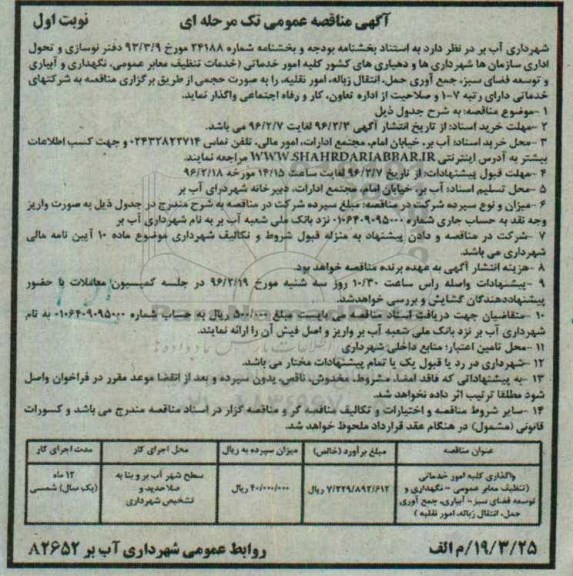 آگهی مناقصه عمومی تک مرحله ای
نوبت اول
شهرداری آب بر در نظر دارد به استناد بخشنامه بودجه و بخشنامه شماره ۲۴۱۸۸ مورخ ۹۳/۳/۹ دفتر نوسازی و تحول
اداری سازمان ها شهرداری ها و دهیاری های کشور کلیه امور خدماتی (خدمات تنظیف معابر عمومی، نگهداری و آبیاری
و توسعه فضای سبز، جمع آوری حمل، انتقال زباله، امور نقلیه، را به صورت حجمی از طریق برگزاری مناقصه به شرکتهای
خدماتی دارای رتبه ۷-۱ و صلاحیت از اداره تعاون، کار و رفاه اجتماعی واگذار نماید.
۱-موضوع مناقصه: به شرح جدول ذیل
۲-مهلت خرید اسناد: از تاریخ انتشار آگهی ۹۶/۲/۳ لغایت ۹۶/۲/۷ می باشد.
۳-محل خرید اسناد: آب بر، خیابان امام، مجتمع ادارات، امور مالی، تلفن تماس ۰۲۴۳۲۸۲۲۷۱۴ و جهت کسب اطلاعات
بیشتر به آدرس اینترنتی WWW.SHAHRDARIABBAR.IR مراجعه نمایند.
۴-مهلت قبول پیشنهادات: از تاریخ ۹۶/۲/۷ لغایت ساعت ۱۴/۱۵ مورخه ۹۶/۲/۱۸
۵-محل تسلیم اسناد: آب بر، خیابان امام، مجتمع ادارات، دبیرخانه شهردرای آب بر
۶-میزان و نوع سپرده شرکت در مناقصه: مبلغ سپرده شرکت در مناقصه به شرح مندرج در جدول ذیل به صورت واریز
وجه نقد به حساب جاری شماره ۰۱۰۶۴۰۹۰۹۵۰۰۰ نزد بانک ملی شعبه آب بر به نام شهرداری آب بر
۷-شرکت در مناقصه و دادن پیشنهاد به منزله قبول شروط و تکالیف شهرداری موضوع ماده ۱۰ آیین نامه مالی
شهرداری می باشد.
۸-هزینه انتشار آگهی به عهده برنده مناقصه خواهد بود.
۹-پیشنهادات واصله راس ساعت ۱۰/۳۰ روز سه شنبه مورخ ۹۶/۲/۱۹ در جلسه کمیسیون معاملات با حضور
پیشنهاددهندگان گشایش و بررسی خواهدشد.
۱۰-متقاضیان جهت دریافت اسناد مناقصه می بایست مبلغ ۵۰۰/۰۰۰ ریال به حساب شماره ۰۱۰۶۴۰۹۰۹۵۰۰۰ به نام
شهرداری آب بر نزد بانک ملی شعبه آب بر واریز و اصل فیش آن را ارائه نمایند.
۱۱-محل تامین اعتبار: منابع داخلی شهرداری
۱۲-شهرداری در رد یا قبول یک یا تمام پیشنهادات مختار می باشد.
۱۳-به پیشنهاداتی که فاقد امضا، مشروط، مخدوش، ناقص، بدون سپرده و بعد از انقضا موعد مقرر در فراخوان واصل
شود مطلقا ترتیب اثر داده نخواهد شد.
۱۴-سایر شروط مناقصه و اختیارات و تکالیف مناقصه گر و مناقصه گزار در اسناد مناقصه مندرج می باشد و کسورات
قانونی (مشمول) در هنگام عقد قرارداد ملحوظ خواهد شد.
عنوان مناقصه | مبلغ برآورد (خالص) | میزان سپرده به ریال | محل اجرای کار | مدت اجرای کار
واگذاری کلیه امور خدماتی
(تنظیف معابر عمومی - نگهداری و
توسعه فضای سبز - آبیاری، جمع آوری
حمل، انتقال زباله، امور نقلیه)
۷/۳۲۹/۸۹۲/۶۱۲ ریال
۴۰۰/۰۰۰/۰۰۰ ریال
سطح شهر آب بر و بنا به
صلاحدید و
تشخیص شهرداری
۱۲ ماه
(یک سال) شمسی
۱۹/۳/۲۵/م الف
روابط عمومی شهرداری آب بر ۸۲۶۵۲